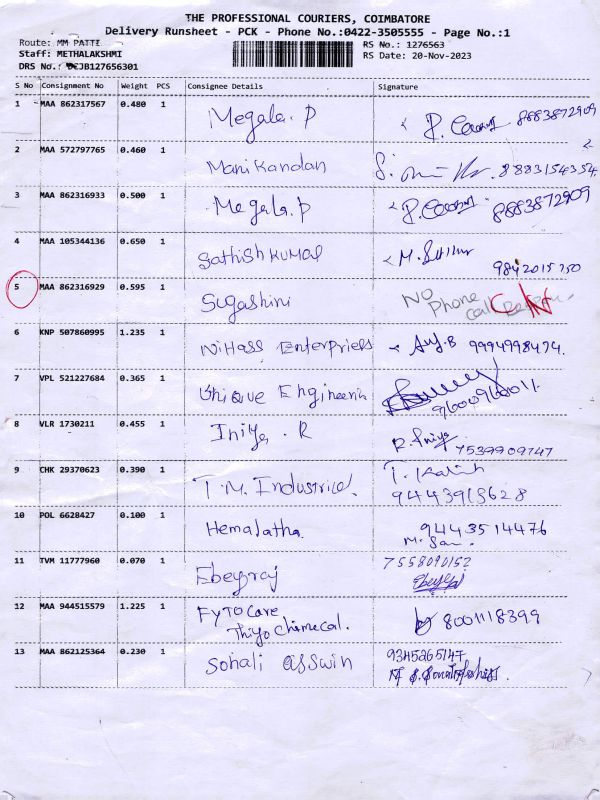 THE PROFESSIONAL COURIERS, COIMBATORE
Delivery Runsheet - PCK - Phone No.:0422-3505555 - Page No.:1
Route: MM PATTI
RS No.: 1276563
Staff: METHALAKSHMI
RS Date: 20-Nov-2023
DRS No.: DCJB127656301
S No Consignment No Weight PCS Consignee Details Signature
1 MAA 862317567 0.480 1 Megala. P 8883872909
2 MAA 572797765 0.460 1 Manikandan 8883154354
3 MAA 862316933 0.500 1 Megala.P 8883872909
4 MAA 105344136 0.650 1 Sathish kumar 9842015750
5 MAA 862316929 0.595 1 Sugashini No Phone call
6 KNP 507860995 1.235 1 NiHass Enterpriers 9994998474.
7 VPL 521227684 0.365 1 Unique Engineerin 9600960011.
8 VLR 1730211 0.455 1 Iniya . R R. Priya 7539909747
9 CHK 29370623 0.390 1 T.M. Industrial. 9443913628
10 POL 6628427 0.100 1 Hemalatha. 9443514476
11 TVM 11777960 0.070 1 Ebeyraj 7558090152
12 MAA 944515579 1.225 1 FYTO Care Thiyo Chemecal. 8001118399
13 MAA 862125364 0.230 1 Sohali asswin 9345265147